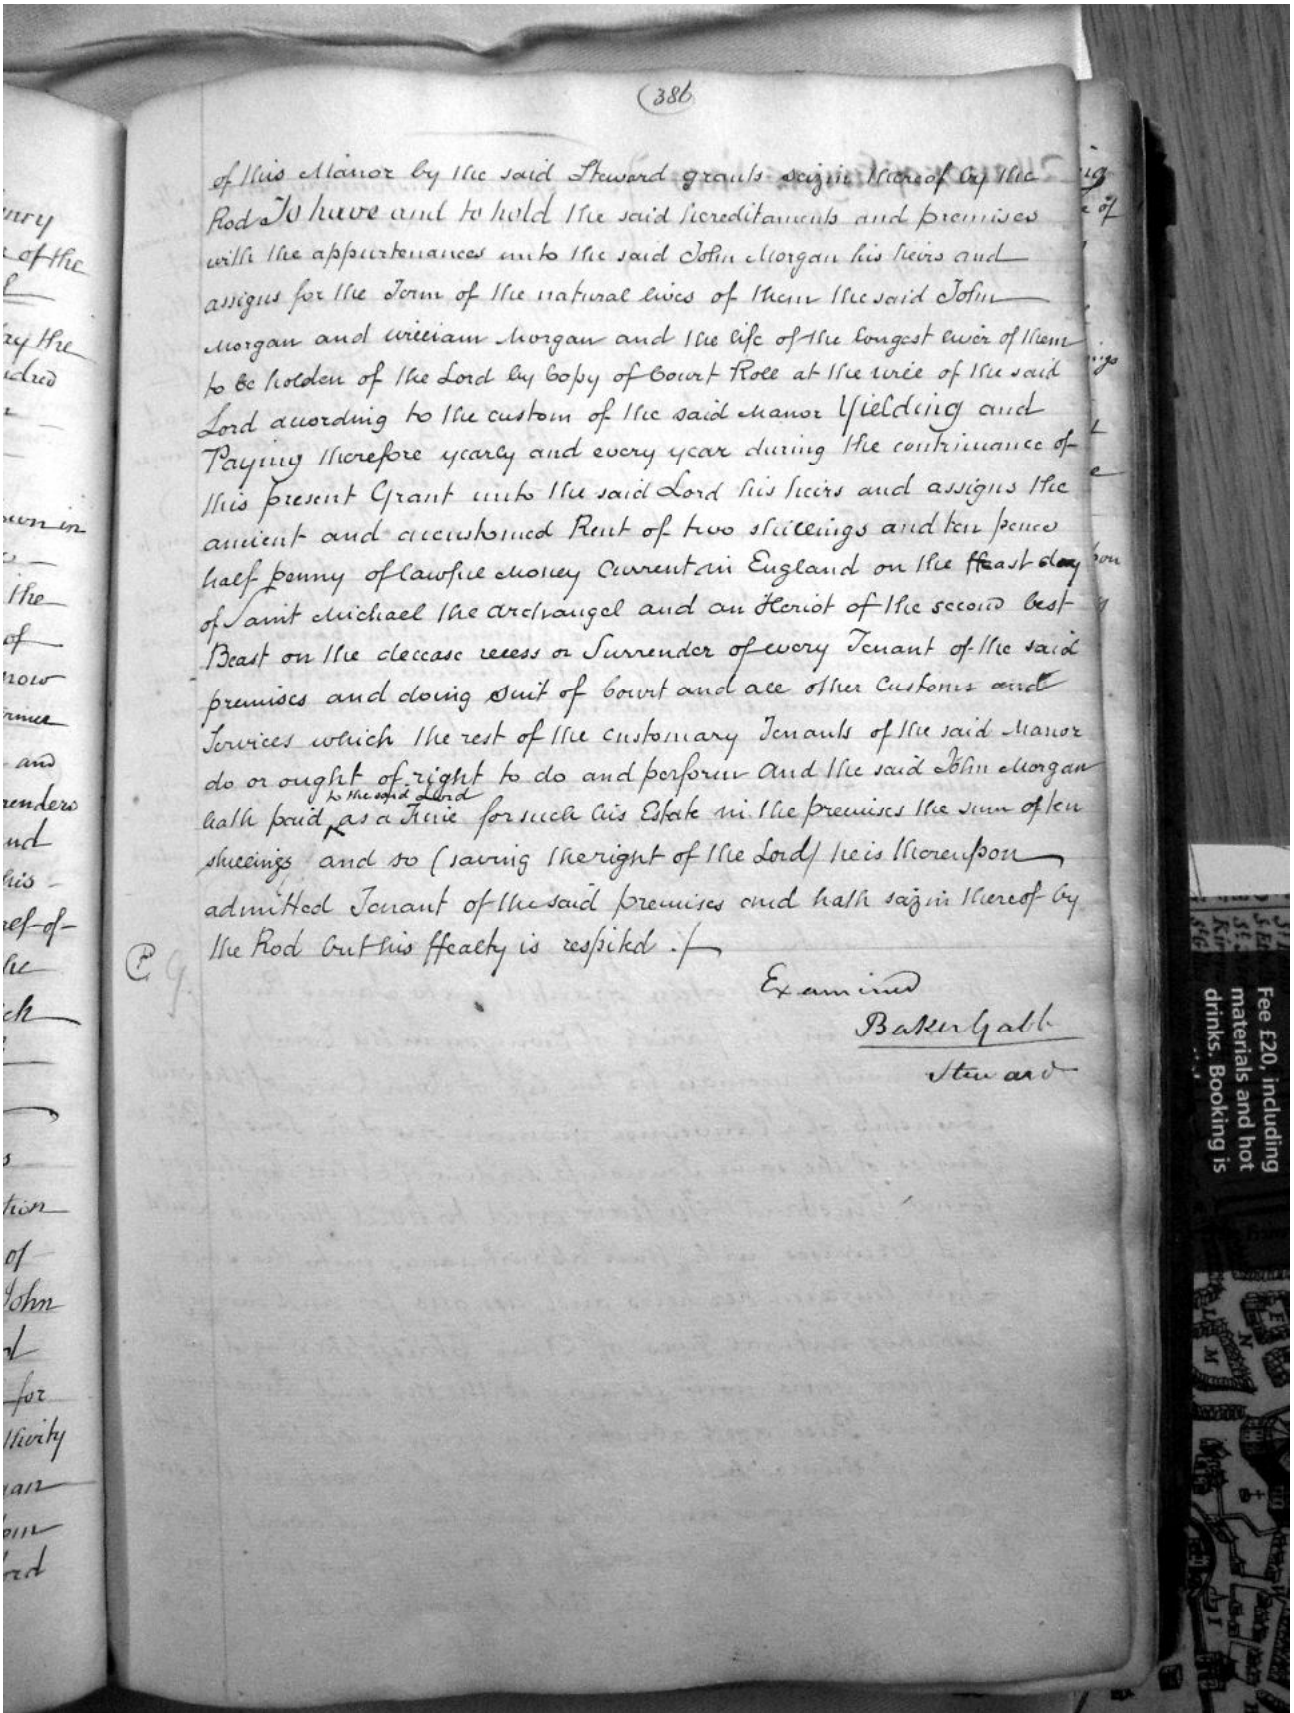 (386
of this Manor by the said Steward grants seizin thereof by the
Rod To have and to hold the said hereditaments and premises
with the appurtenances unto the said John Morgan his heirs and
assigns for the Term of the natural lives of them the said John
Morgan and William Morgan and the life of the longest liver of them
to be holden of the Lord by Copy of Court Roll at the will of the said
Lord according to the custom of the said Manor Yielding and
Paying therefore yearly and every year during the continuance of
this present Grant unto the said Lord his heirs and assigns the
ancient and accustomed Rent of two shillings and ten pence
half penny of lawful Money Current in England on the ffeast day
of Saint Michael the Archangel and an Heriot of the second best
Beast on the decease recess or Surrender of every Tenant of the said
premises and doing suit of Court and all other Customs and
Services which the rest of the customary Tenants of the said Manor
do or ought of right to do and perform And the said John Morgan
to the said Lord
hath paid as a Fine for such his Estate in the premises the sum of ten
shillings and so (saving the right of the Lord) he is thereupon
admitted Tenant of the said premises and hath seizin thereof by
the Rod but his ffealty is respited
Examined
Baker Gabb
Steward
enry
of the
ay the
own in
the
of
now
and
enders
his
he
tion
of
John
for
tivity
Fee £20, including
materials and hot
drinks. Booking is